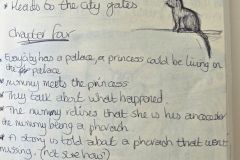 * Heads to the city gates
Chapter four
* Egyptian city has a palace, a princess could be living on
the palace
* mummy meets the princess
* They talk about what happened
* The mummy realises that she has an ancestor
the mummy being a pharaoh
* A story is told about a pharaoh that went
missing. (not sure how?)